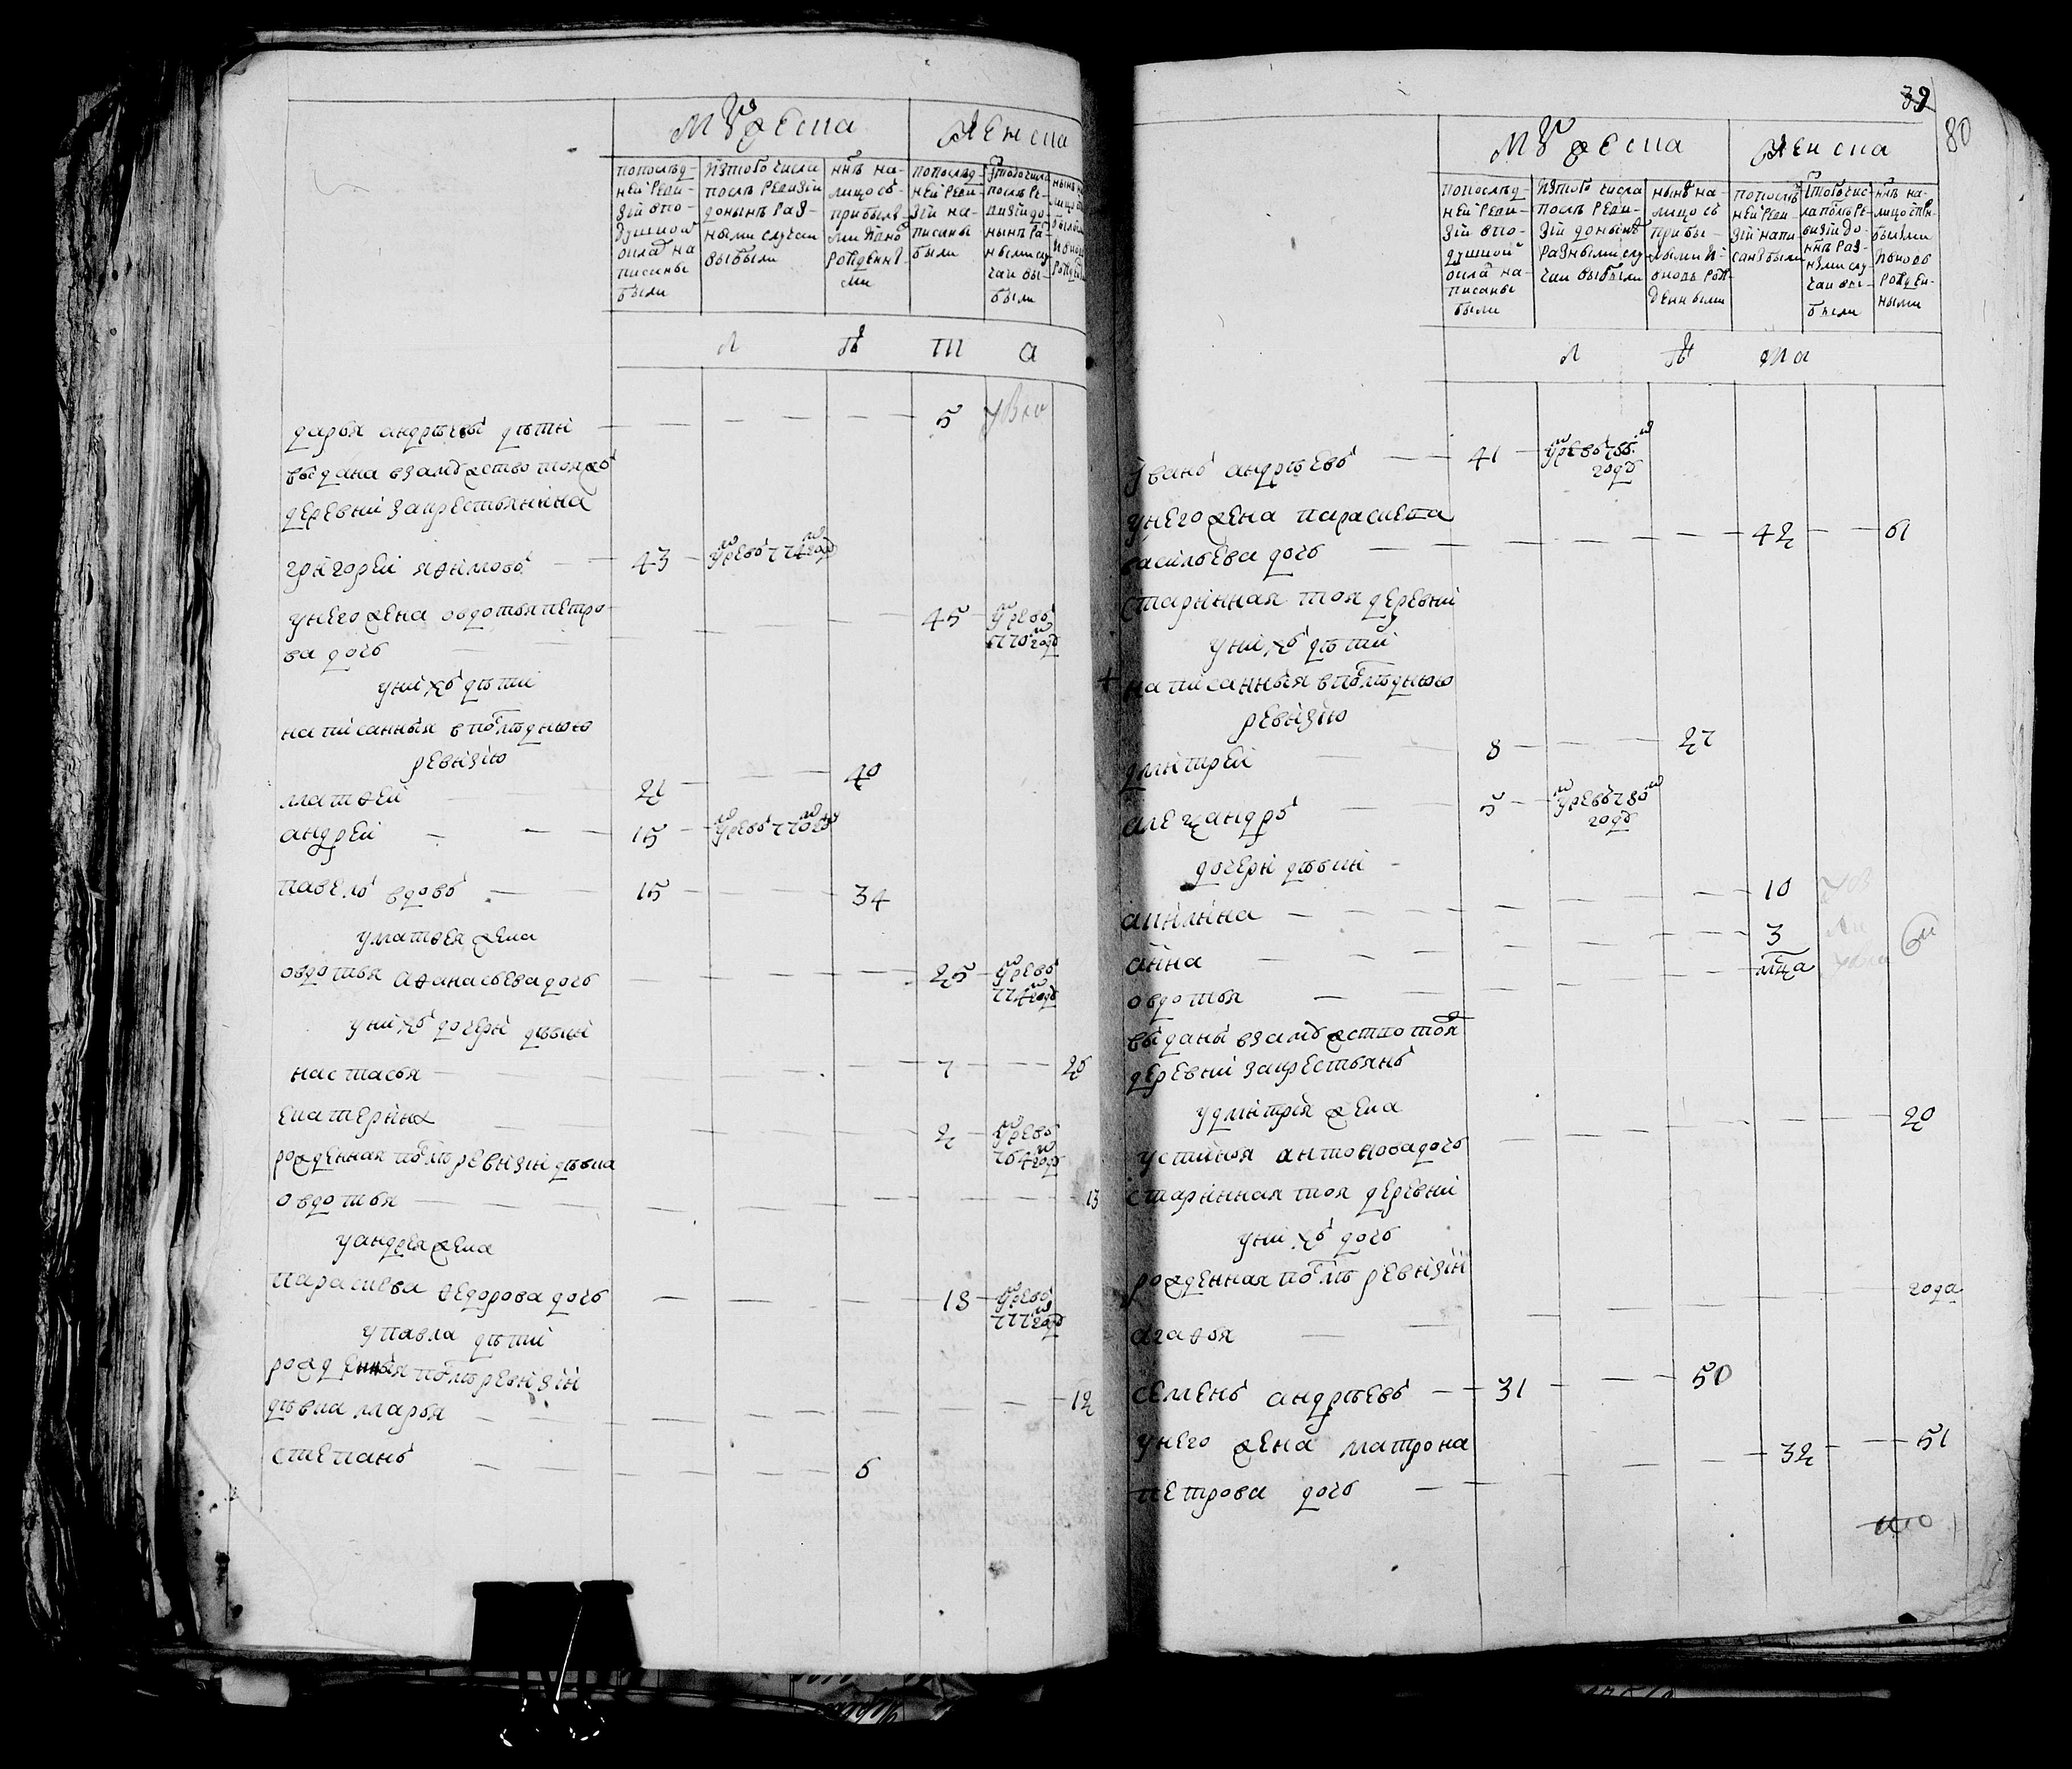 Мужеска Женска
пополѣд-ней реви-зіи впо-душной окладъ на-писаны были
изтого числа послѣ ревизіи донынѣ раз-ными случаи выбыли
ннѣ на-лицо съ прибылы-ми ивновъ рожденны-ми
пополѣд-ней реви-зіи на-писаны были
изтого числа послѣ ре-визіи до-нынѣ ра-ными слу-чаи вы-были
л ѣ т а
дарья андрѣевы дѣти — 5
выдана взамужество тояжъ
деревни закрестьянина
григорей яѳимовъ — 43 — умре въ 774 году
унего жена овдотья петро-
ва дочь — 45 — умре въ 770 году
унихъ дѣти
написанныя впослѣднюю
ревизию
матѳей — 21 — 40
андрей — 15 — умре въ 770 году
павелъ вдовъ — 15 — 34
уматвея жена
овдотья аѳанасьева дочь — 25 — умре въ 774 году
унихъ дочери дѣвки
настасья — 7 — 26
екатерина — 2 — умре въ 764 году
рожденная послѣ ревизіи дѣвка
овдотья — 13
уандрея жена
параскева ѳедорова дочь — 18 — умре въ 777 году
упавла дѣти
рожденныя послѣ ревизіи
дѣвка марья — 12
степанъ — 6
39
80
Мужеска Женска
пополѣд-ней реви-зіи впо-душной окла на-писаны были
изтого числа послѣ реви-зіи донынѣ разными слу-чаи выбыли
нынѣ на-лицо съ прибы-лыми и-вновь рож-денными
пополѣ-ней реви-зіи напи-саны были
изтого чис-ла послѣ ре-визіи до-ннѣ раз-ными слу-чаи вы-были
ннѣ на-лицо спри-былыми ивновь рожден-ными
л ѣ т а
иванъ андрѣевъ — 41 — умре въ году
унего жена параскева
васильева дочь — 42 — 61
старинная тоя деревни
унихъ дѣти
написанныя впослѣднюю
ревизию
дмитрей — 8 — 27
алеѯандръ — 5 — умре въ 780 году
дочери дѣвки
акилина — 10
анна — 3
овдотья — мца
выданы взамужество тоя
деревни закрестьянъ
удмитрія жена
устинья антонова дочь — 20
старинная тоя деревни
унихъ дочь
рожденная послѣ ревизіи
агаѳья — года
семенъ андрѣевъ — 31 — 50
унего жена матрона
петрова дочь — 32 — 51